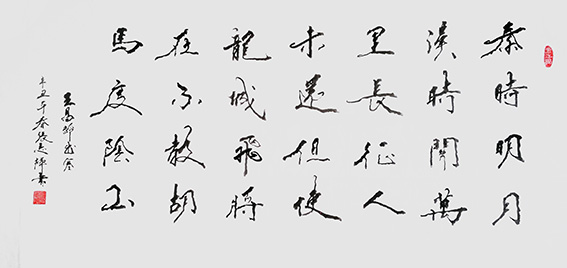 秦時明月
漢時關萬
里長征人
未還但使
龍城飛將
在不教胡
馬度陰山
王昌齡出塞
辛丑年春